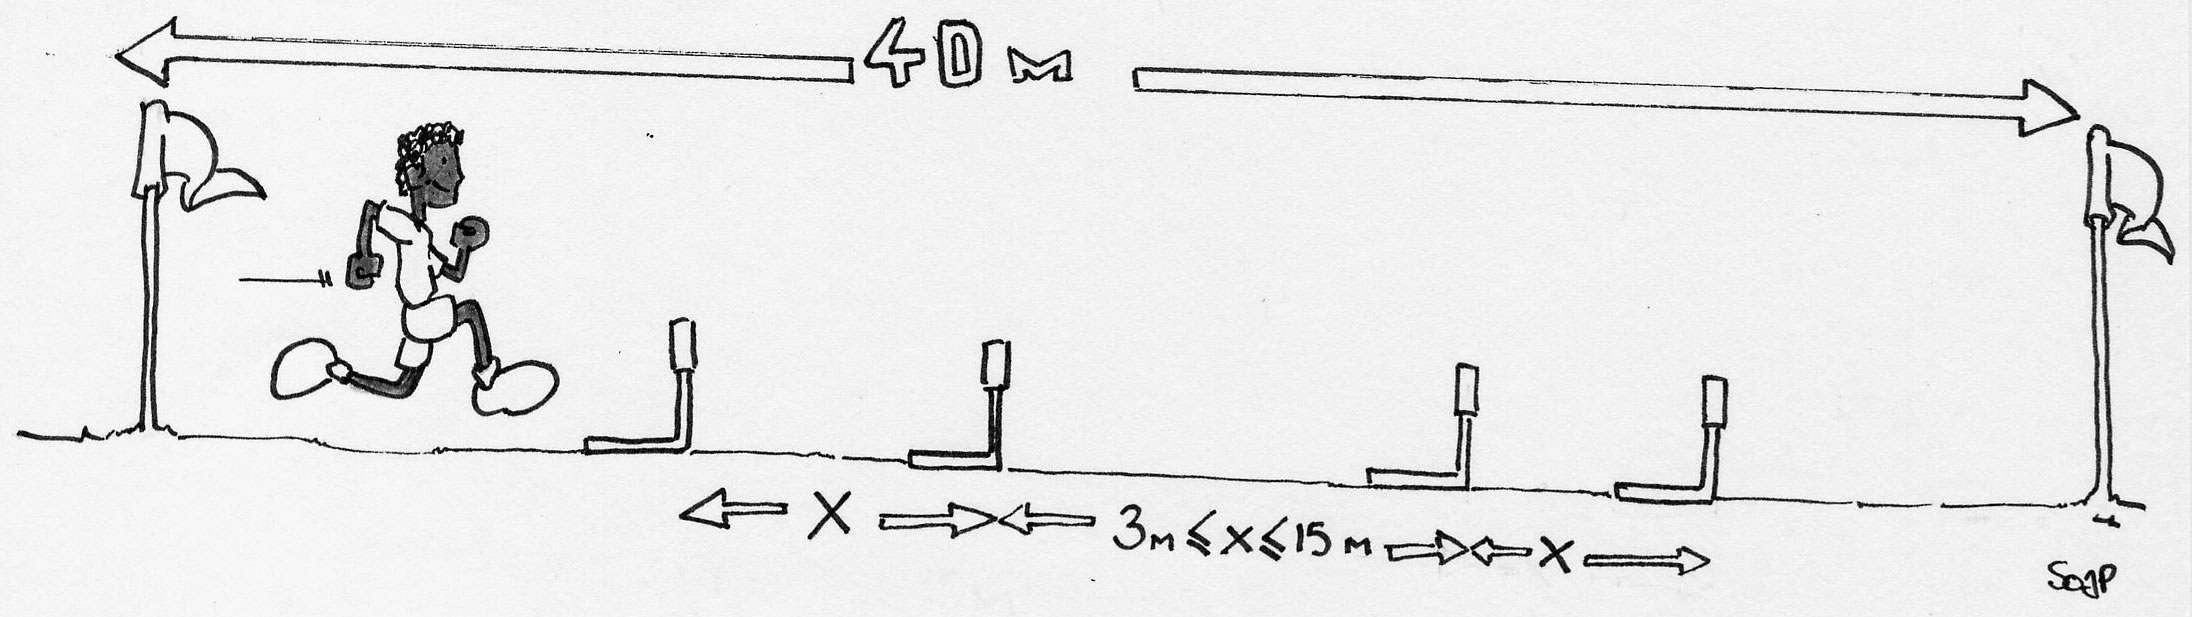 40 m
X
3m ≤ x ≤ 15 m
X
SOJP